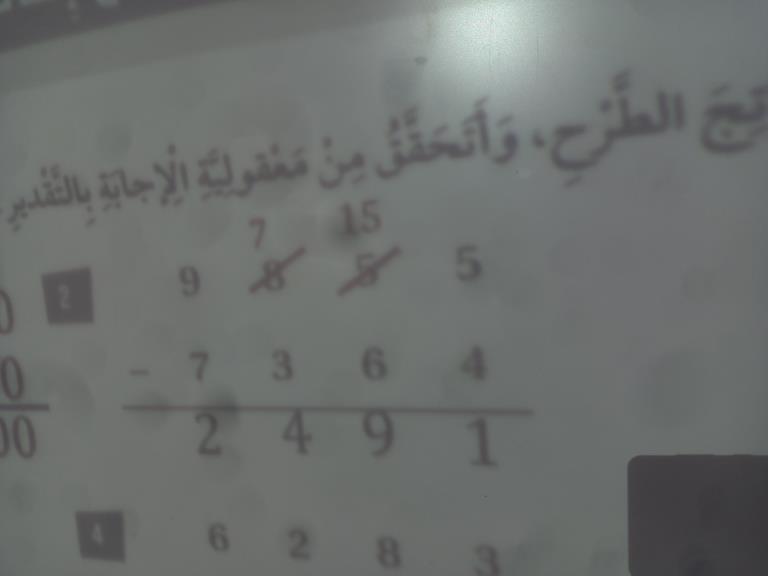 الطَّرْحِ، وَأَتَحَقَّقُ مِنْ مَعْقولِيَّةِ الْإِجابَةِ بِالتَّقْديرِ
7 15
2 9 8 5 5
- 7 3 6 4
2 4 9 1
4 6 2 8 3